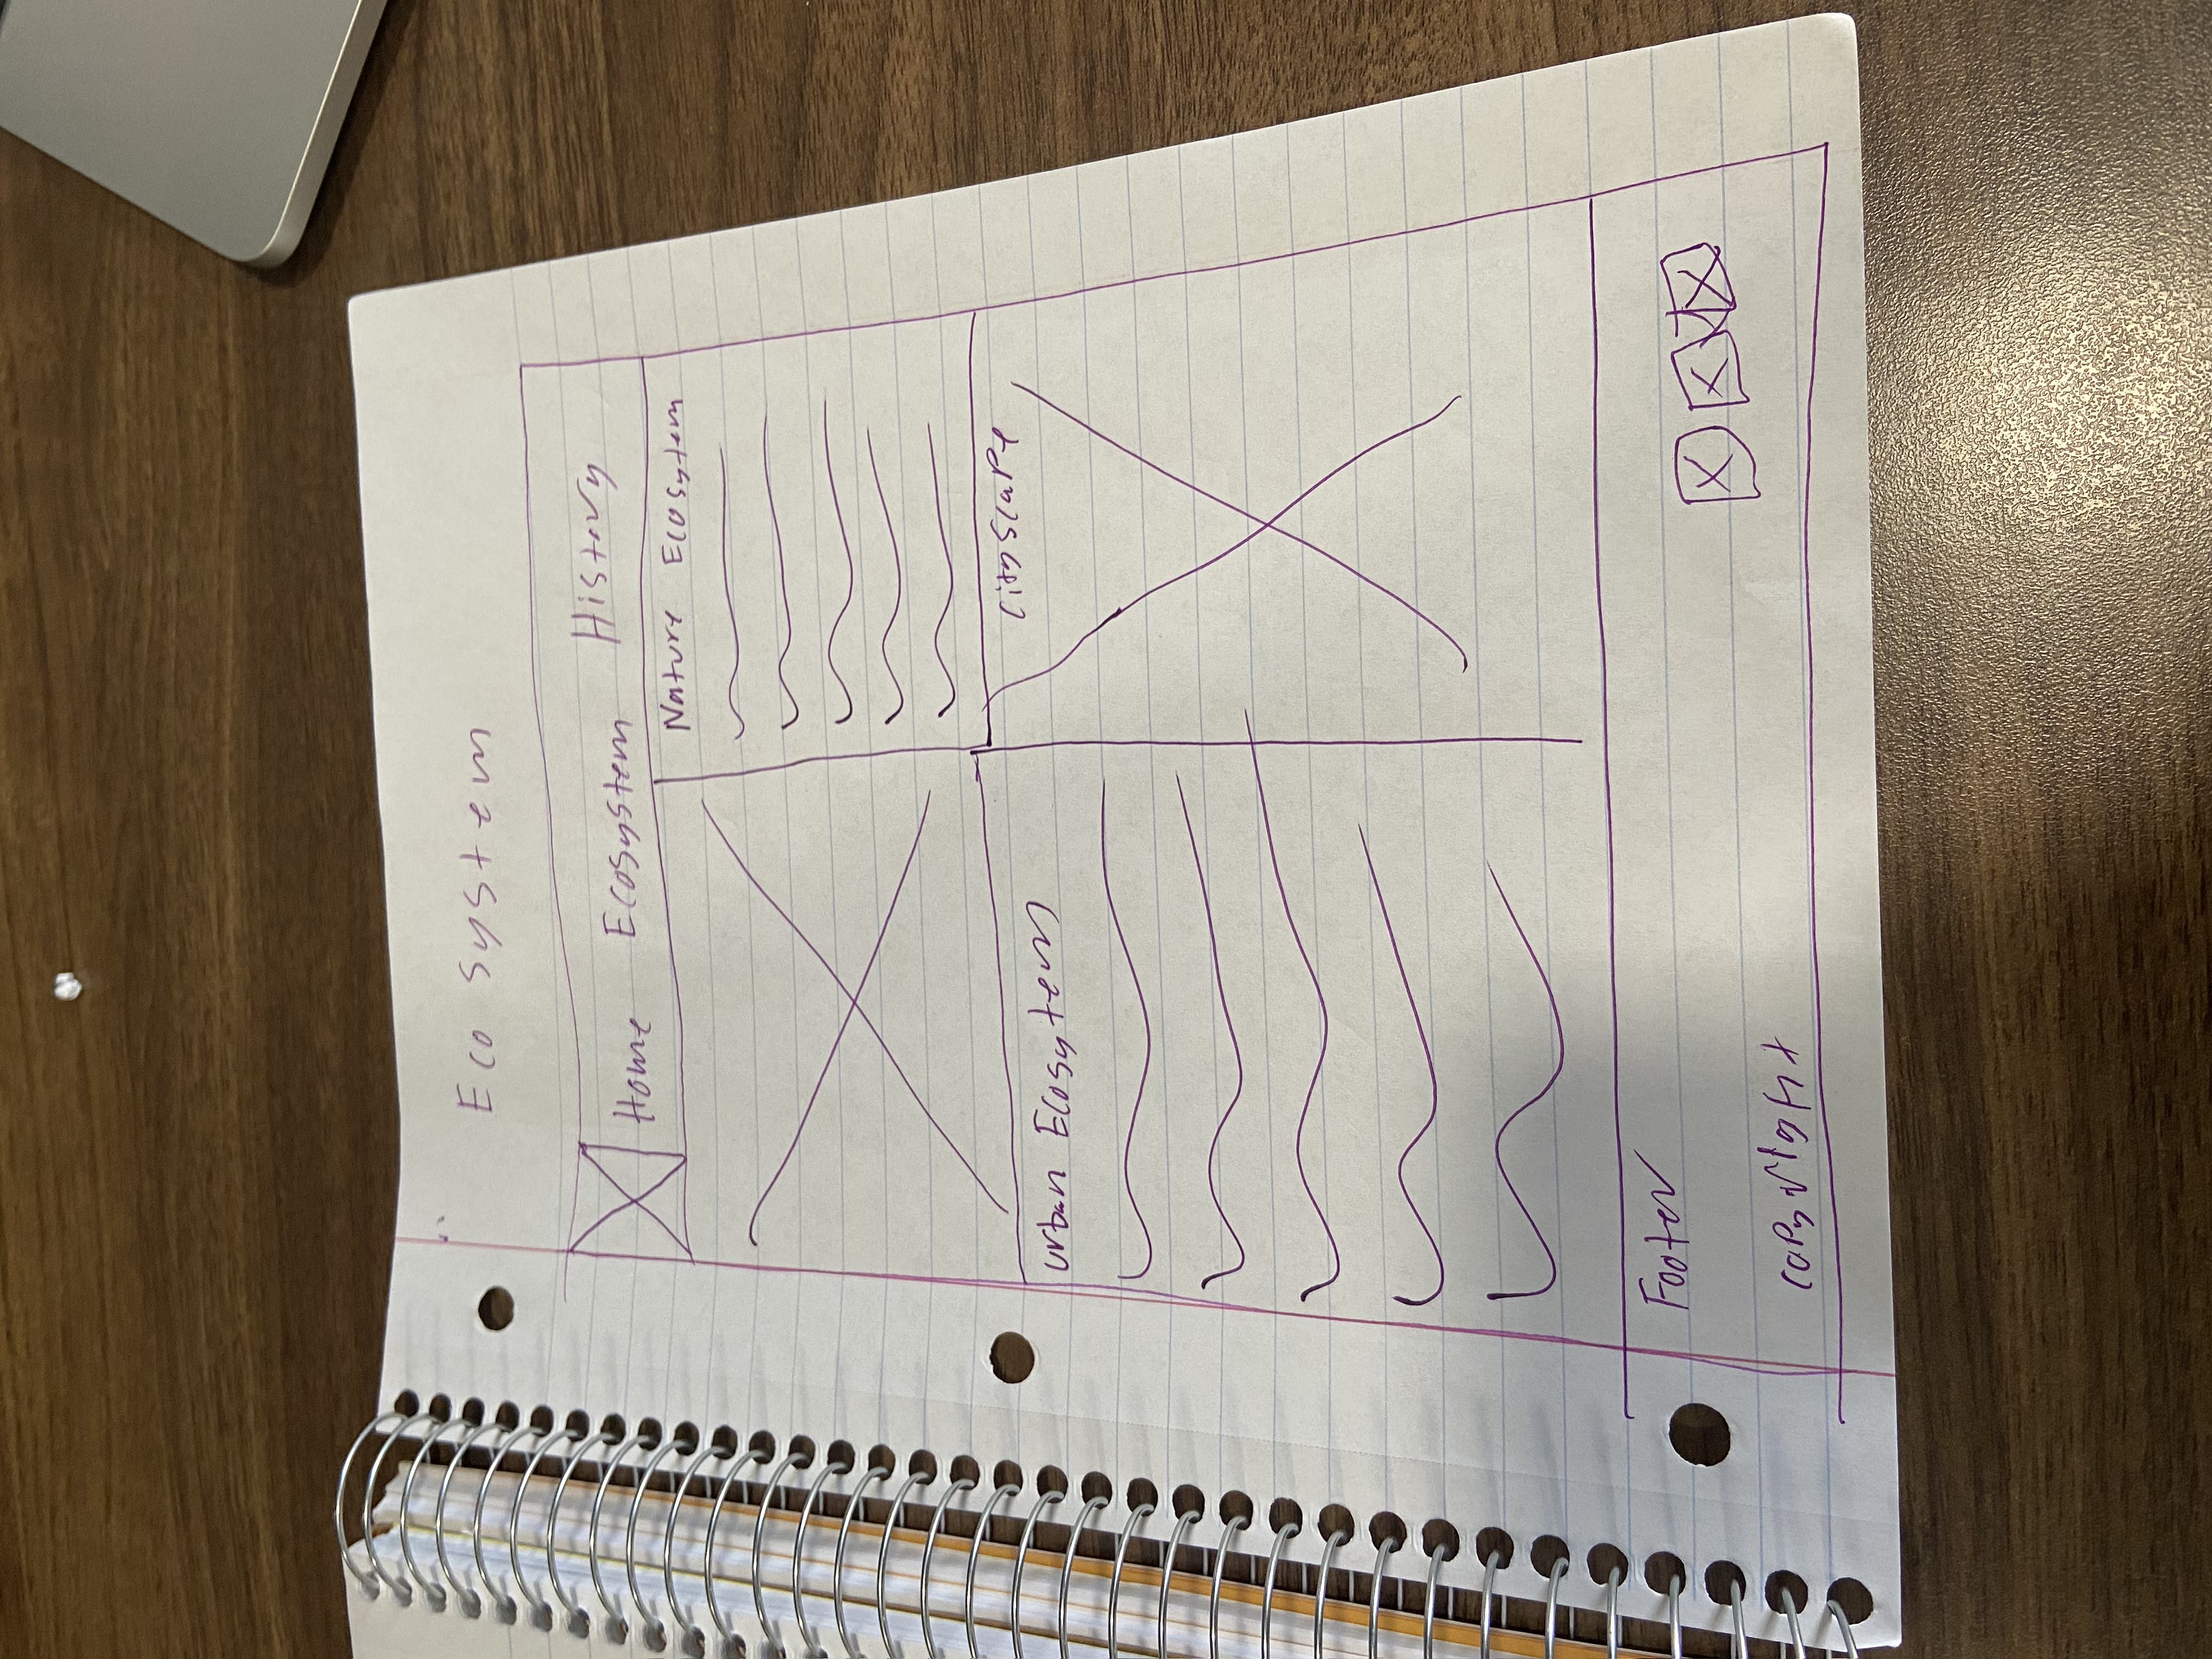 Eco System
Home Ecosystem History
Nature Ecosystem
Urban Ecosystem
cityscape
Footer
copyright